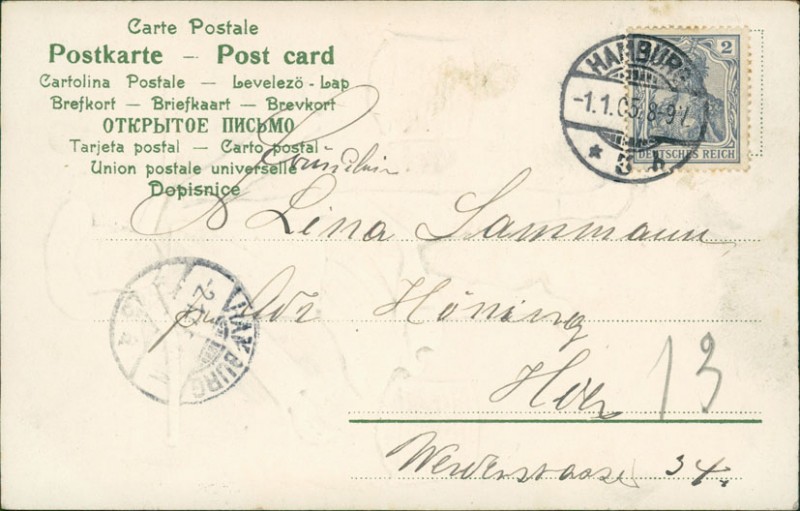 Carte Postale
Postkarte — Post card
Cartolina Postale — Levelező-Lap
Brefkort — Briefkaart — Brevkort
ОТКРЫТОЕ ПИСЬМО
Tarjeta postal — Carto postal
Union postale universelle
Dopisnice
2
DEUTSCHES REICH
HAMBURG
-1.1.05. 8-9V.
* 3 h.
Fräulein
Lina Sammann
Höning
13
Werderstrasse 34.
HAMBURG